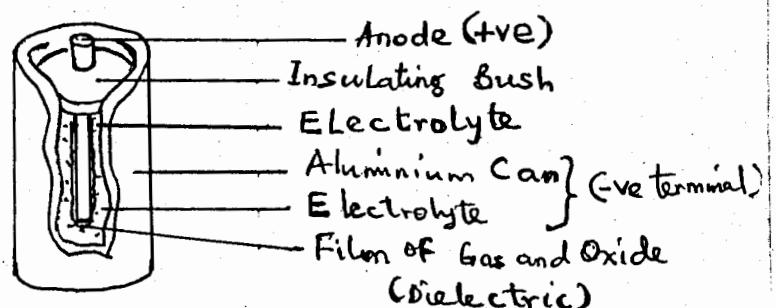 Anode (+ve)
Insulating Bush
Electrolyte
Aluminium Can
Electrolyte
(-ve terminal)
Film of Gas and Oxide
(Dielectric)